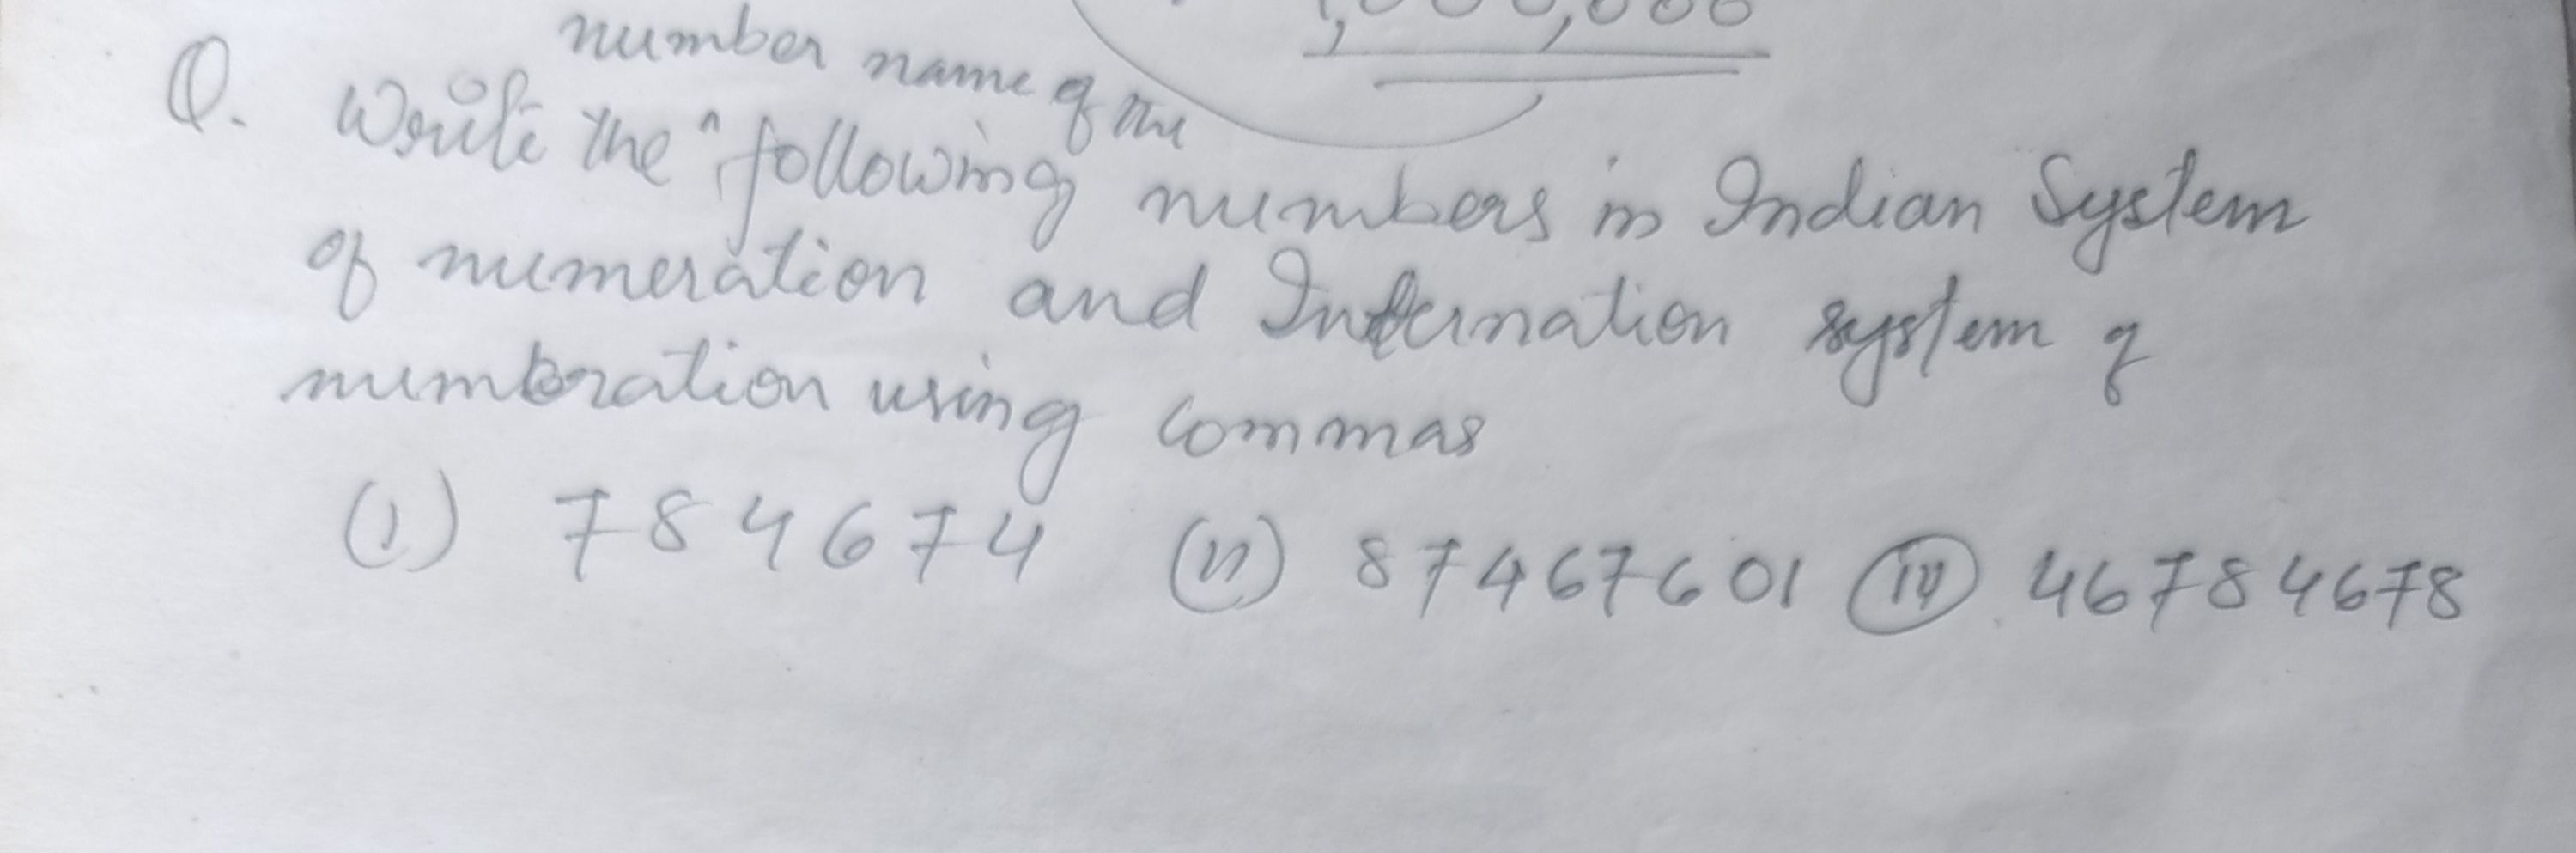 1,000,000
number name of the
Q. Write the ^ following numbers in Indian System
of numeration and Internation system of
numbration using commas
(i) 784674 (ii) 87467601 (iii) 46784678